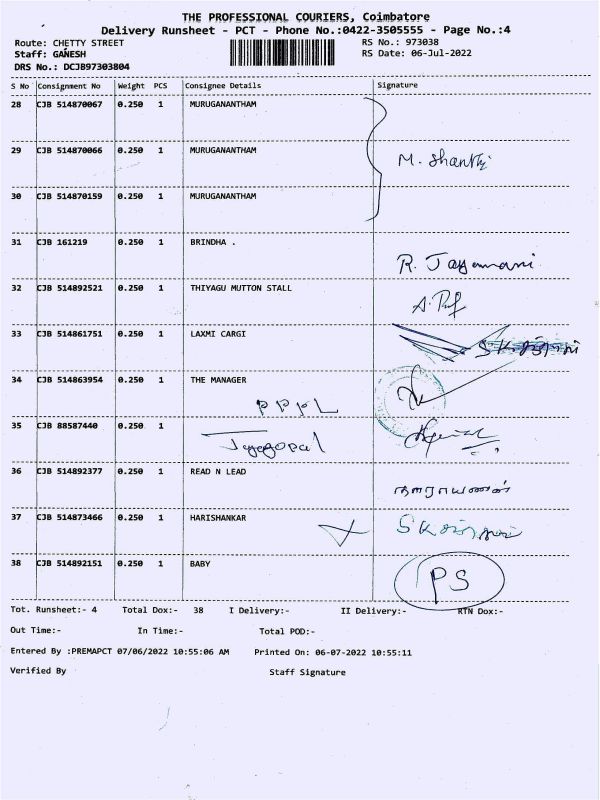 THE PROFESSIONAL COURIERS, Coimbatore
Delivery Runsheet - PCT - Phone No.:0422-3505555 - Page No.:4
Route: CHETTY STREET RS No.: 973038
Staff: GANESH RS Date: 06-Jul-2022
DRS No.: DCJB97303804
S No Consignment No Weight PCS Consignee Details Signature
28 CJB 514870067 0.250 1 MURUGANANTHAM
29 CJB 514870066 0.250 1 MURUGANANTHAM M. Shanthi
30 CJB 514870159 0.250 1 MURUGANANTHAM
31 CJB 161219 0.250 1 BRINDHA . R. Jayamani
32 CJB 514892521 0.250 1 THIYAGU MUTTON STALL
33 CJB 514861751 0.250 1 LAXMI CARGI
34 CJB 514863954 0.250 1 THE MANAGER
PPPL
35 CJB 88587440 0.250 1
Jayagopal
36 CJB 514892377 0.250 1 READ N LEAD
நாராயணன்
37 CJB 514873466 0.250 1 HARISHANKAR
38 CJB 514892151 0.250 1 BABY PS
Tot. Runsheet:- 4 Total Dox:- 38 I Delivery:- II Delivery:- RTN Dox:-
Out Time:- In Time:- Total POD:-
Entered By :PREMAPCT 07/06/2022 10:55:06 AM Printed On: 06-07-2022 10:55:11
Verified By Staff Signature